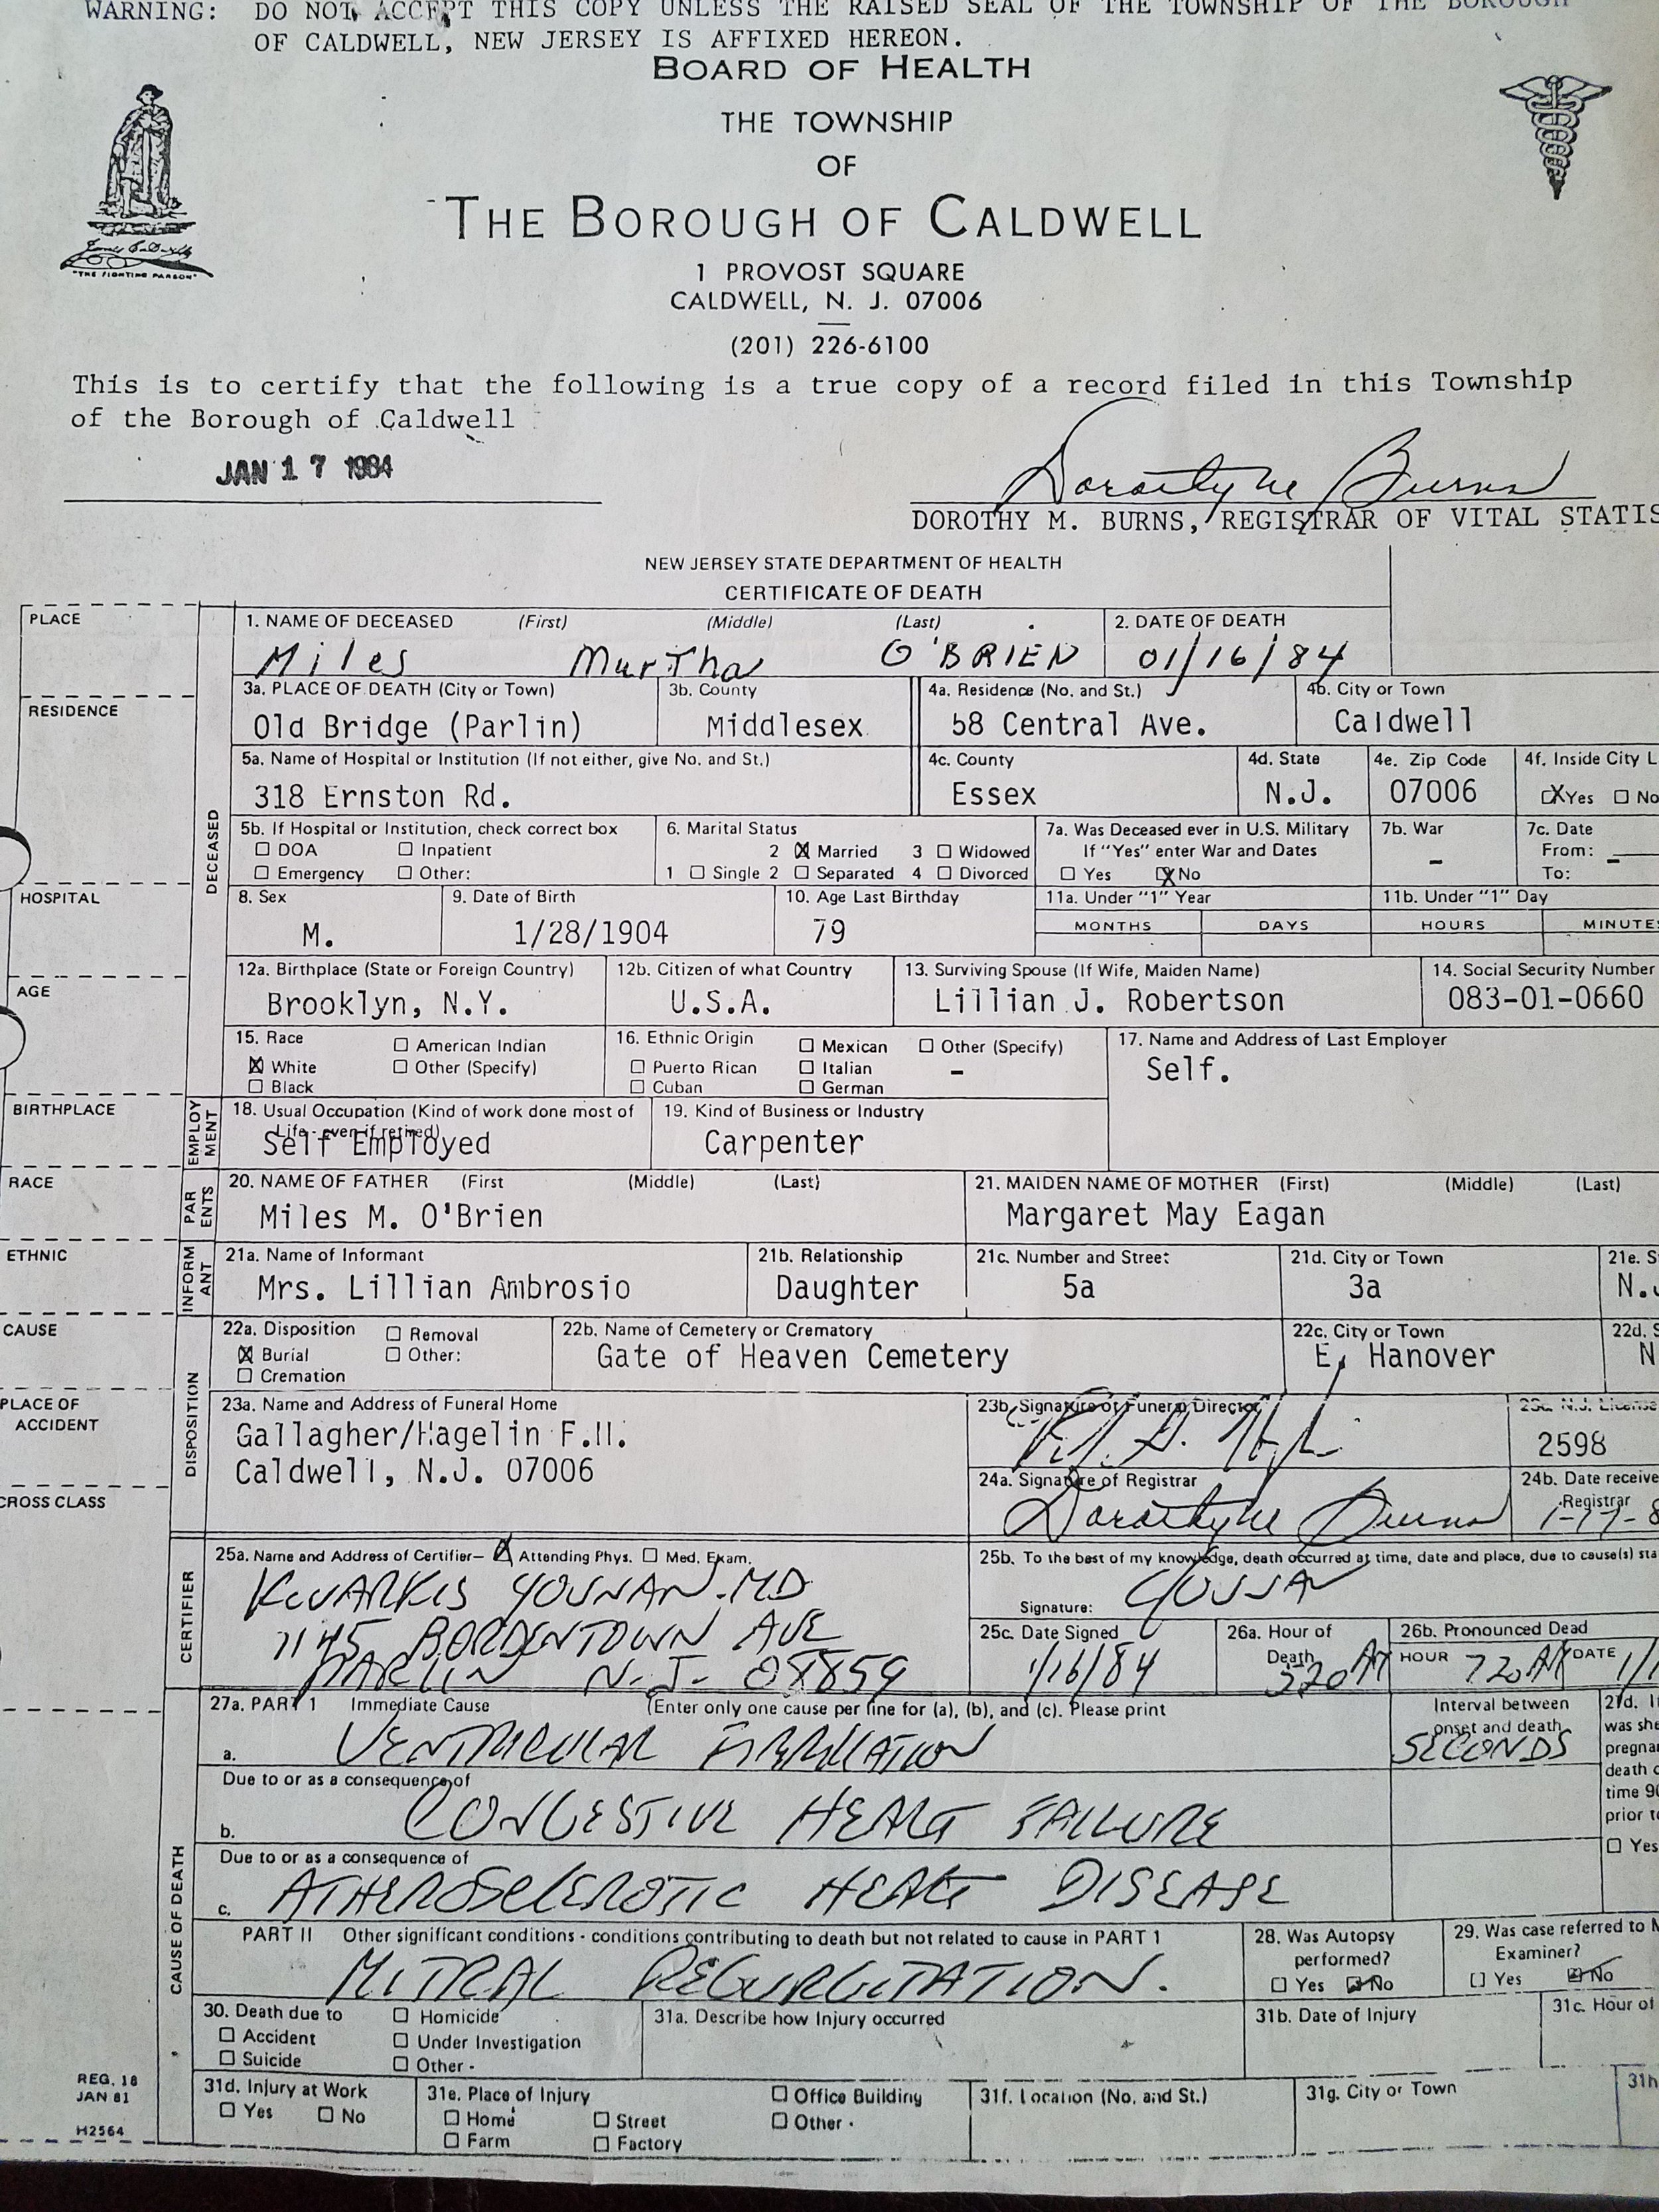 WARNING: DO NOT ACCEPT THIS COPY UNLESS THE RAISED SEAL OF THE TOWNSHIP OF THE BOROUGH
OF CALDWELL, NEW JERSEY IS AFFIXED HEREON.
BOARD OF HEALTH
THE TOWNSHIP
OF
THE BOROUGH OF CALDWELL
"THE FIGHTING PARSON"
1 PROVOST SQUARE
CALDWELL, N. J. 07006
(201) 226-6100
This is to certify that the following is a true copy of a record filed in this Township
of the Borough of Caldwell
JAN 17 1984
Dorothy M Burns
DOROTHY M. BURNS, REGISTRAR OF VITAL STATIS
NEW JERSEY STATE DEPARTMENT OF HEALTH
CERTIFICATE OF DEATH
PLACE
1. NAME OF DECEASED (First) (Middle) (Last) 2. DATE OF DEATH
Miles Murtha O'BRIEN 01/16/84
RESIDENCE
DECEASED
3a. PLACE OF DEATH (City or Town) 3b. County 4a. Residence (No. and St.) 4b. City or Town
Old Bridge (Parlin) Middlesex 58 Central Ave. Caldwell
5a. Name of Hospital or Institution (If not either, give No. and St.) 4c. County 4d. State 4e. Zip Code 4f. Inside City L
318 Ernston Rd. Essex N.J. 07006 X Yes No
5b. If Hospital or Institution, check correct box 6. Marital Status 7a. Was Deceased ever in U.S. Military 7b. War 7c. Date
DOA Inpatient 2 X Married 3 Widowed If "Yes" enter War and Dates - From: -
Emergency Other: 1 Single 2 Separated 4 Divorced Yes X No To:
HOSPITAL
8. Sex 9. Date of Birth 10. Age Last Birthday 11a. Under "1" Year 11b. Under "1" Day
MONTHS DAYS HOURS MINUTES
M. 1/28/1904 79
AGE
12a. Birthplace (State or Foreign Country) 12b. Citizen of what Country 13. Surviving Spouse (If Wife, Maiden Name) 14. Social Security Number
Brooklyn, N.Y. U.S.A. Lillian J. Robertson 083-01-0660
15. Race American Indian 16. Ethnic Origin Mexican Other (Specify) 17. Name and Address of Last Employer
X White Other (Specify) Puerto Rican Italian - Self.
Black Cuban German
BIRTHPLACE
EMPLOY
MENT
18. Usual Occupation (Kind of work done most of 19. Kind of Business or Industry
Life - even if retired)
Self Employed Carpenter
RACE
PAR
ENTS
20. NAME OF FATHER (First (Middle) (Last) 21. MAIDEN NAME OF MOTHER (First) (Middle) (Last)
Miles M. O'Brien Margaret May Eagan
ETHNIC
INFORM
ANT
21a. Name of Informant 21b. Relationship 21c. Number and Street 21d. City or Town 21e. S
Mrs. Lillian Ambrosio Daughter 5a 3a N.J
CAUSE
DISPOSITION
22a. Disposition Removal 22b. Name of Cemetery or Crematory 22c. City or Town 22d. S
X Burial Other: Gate of Heaven Cemetery E. Hanover N
Cremation
PLACE OF
ACCIDENT
23a. Name and Address of Funeral Home 23b. Signature of Funeral Director 23c. N.J. License
Gallagher/Hagelin F.H. 2598
Caldwell, N.J. 07006
24a. Signature of Registrar 24b. Date receive
Registrar
Dorothy M Burns 1-17-8
CROSS CLASS
CERTIFIER
25a. Name and Address of Certifier- X Attending Phys. Med. Exam. 25b. To the best of my knowledge, death occurred at time, date and place, due to cause(s) sta
KWARKIS YOUNAN. MD
Signature:
1145 BORDENTOWN AVE
PARLIN N.J. 08859
25c. Date Signed 26a. Hour of Death 26b. Pronounced Dead
1/16/84 320 AM HOUR 720 AM DATE 1/1
27a. PART 1 Immediate Cause (Enter only one cause per line for (a), (b), and (c). Please print Interval between onset and death 27d. I
a. VENTRICULAR FIBRILLATION SECONDS
was she
pregna
death o
time 90
prior to
Yes
Due to or as a consequence of
b. CONGESTIVE HEART FAILURE
Due to or as a consequence of
c. ATHEROSCLEROTIC HEART DISEASE
CAUSE OF DEATH
PART II Other significant conditions - conditions contributing to death but not related to cause in PART 1 28. Was Autopsy performed? 29. Was case referred to M Examiner?
MITRAL REGURGITATION. Yes X No Yes X No
30. Death due to Homicide 31a. Describe how Injury occurred 31b. Date of Injury 31c. Hour of
Accident Under Investigation
Suicide Other -
REG. 18
JAN 81
H2564
31d. Injury at Work 31e. Place of Injury Office Building 31f. Location (No. and St.) 31g. City or Town 31h
Yes No Home Street Other
Farm Factory